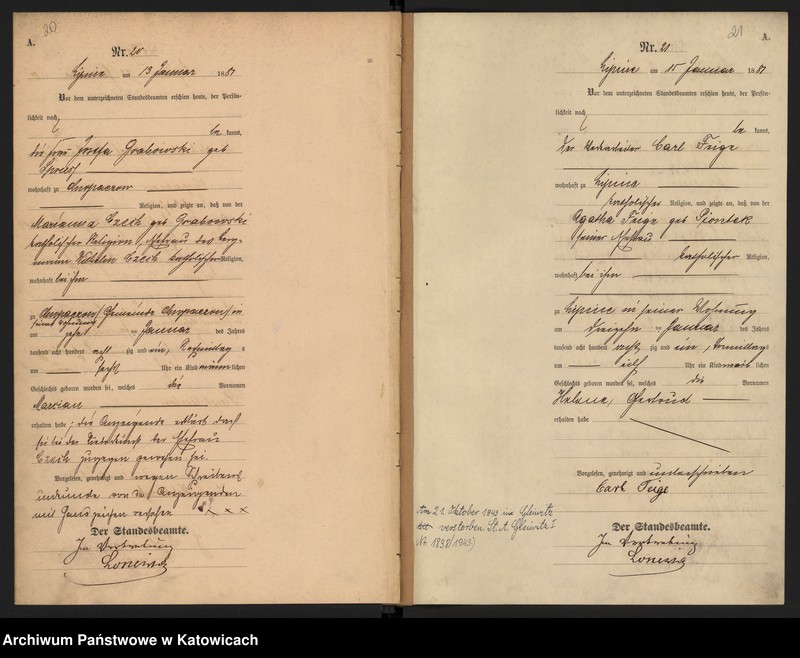 20
A.
Nr. 20
Lipine am 13 Januar 1881
Vor dem unterzeichneten Standesbeamten erschien heute, der Persön-
lichkeit nach
be kannt,
die Frau Josefa Grabowski geb
wohnhaft zu
Religion, und zeigte an, daß von der
Marianna Czech geb Grabowski
katholischer Religion, Ehefrau des Berg-
mann Wilhelm Czech katholischer Religion,
wohnhaft bei ihm
zu Gemeinde in
am zehn ten Januar des Jahres
tausend acht hundert acht zig und ein, Nachmittag s
um sechs Uhr ein Kind männ lichen
Geschlechts geboren worden sei, welches die Vornamen
Marcian
erhalten habe; die Anzeigende erklärt daß
sie bei der Niederkunft der Ehefrau
Czech zugegen gewesen sei.
Vorgelesen, genehmigt und wegen Schreibens
unkunde von der Anzeigenden
mit Handzeichen versehen x x x
Der Standesbeamte.
In Vertretung
21
A.
Nr. 21
Lipine am 15 Januar 1881
Vor dem unterzeichneten Standesbeamten erschien heute, der Persön-
lichkeit nach
be kannt,
der Carl Feige
wohnhaft zu Lipine
katholischer Religion, und zeigte an, daß von der
Agatha Feige geb Piontek
seiner Ehefrau
katholischer Religion,
wohnhaft bei ihm
zu Lipine in seiner Wohnung
am dreizehn ten Januar des Jahres
tausend acht hundert acht zig und ein, Vormittags
um elf Uhr ein Kind weib lichen
Geschlechts geboren worden sei, welches die Vornamen
Helene, Gertrud
erhalten habe
Vorgelesen, genehmigt und unterschrieben
Carl Feige
Am 21. Oktober 1943 in Gleiwitz
verstorben. St. A. Gleiwitz I
Nr. 1838/1943)
Der Standesbeamte.
In Vertretung
Archiwum Państwowe w Katowicach